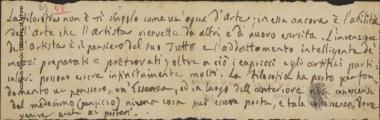 La filosofia non è sì singola come un'opera d'arte; in essa ancora è l'abilità
dell'arte che l'artista ricevette da altri e di nuovo eser-cita. L'invenzione
dell'artista è il pensiero del suo Tutto e l'adoperamento intelligente de'
mezzi preparati e pretrovati; oltre a ciò i capricci e gli artifizi parti
colari possono essere infinitamente molti. La filosofia ha posto per fon
damento un pensiero, un'Essenza, ed in luogo dell'anteriore
dal medesimo nessuna cosa può essere posta, e tale
venire anche ai posteri.